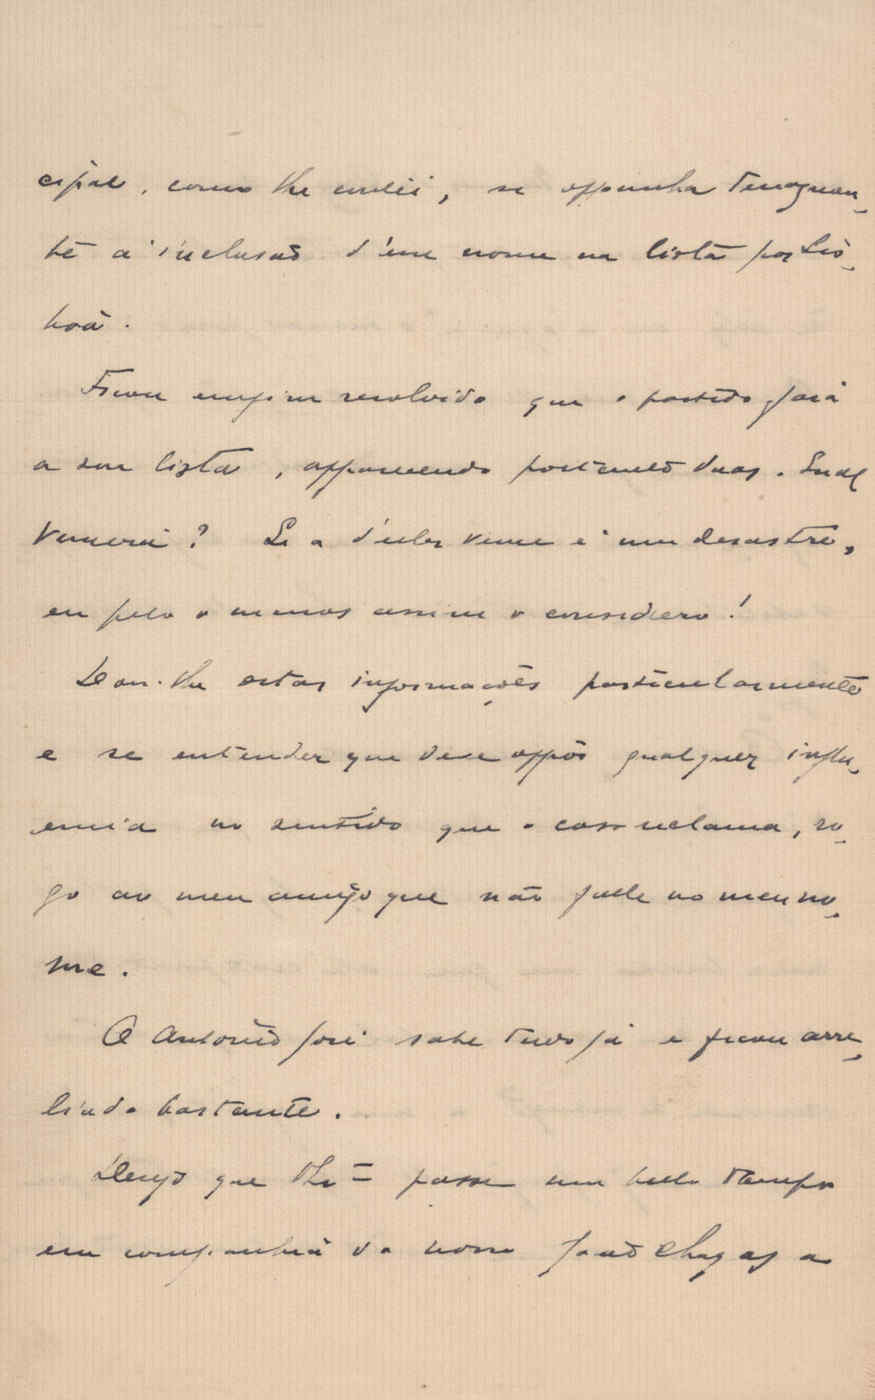 cipal, como lhe contei, se oppunha tenazmen-
te á inclusão d'um nome na lista por Lis-
boa.
Ficou emfim resolvido que o partido faria
a sua lista, apparecendo portanto duas. Qual
vencerá? Se a d'elles vence é um desastre,
eu pelo o menos assim o considero!
Dou-lhe estas informações particularmente
e se entender que deve oppôr qualquer influ-
encia no sentido que o caso reclama, ro-
go ao meu amigo que não falle no meu no-
me.
O Antonio José sabe tudo já e ficou arre-
liado bastante.
Desejo que passe um bello tempo
em companhia do nosso João Chagas a